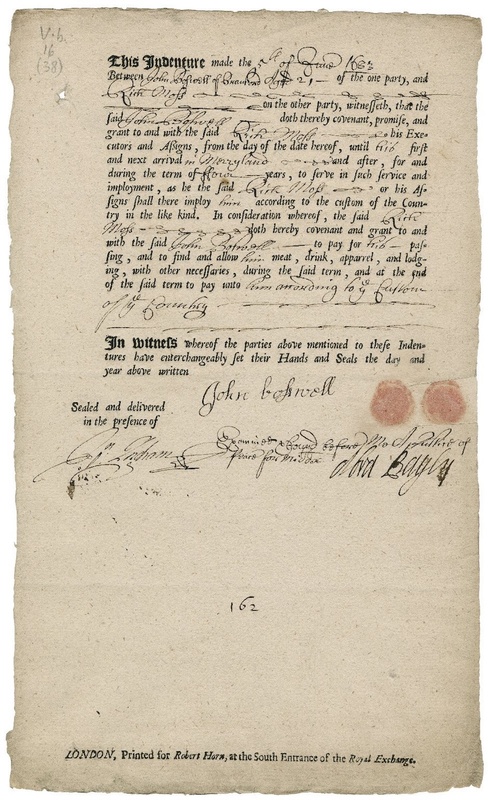 V.b.
16
(38)
This Indenture made the 5th of June 1683
Between John Boswell of Age 21, of the one party, and
Rich Moss
on the other party, witnesseth, that the
said John Boswell doth thereby covenant, promise, and
grant to and with the said Rich Moss his Exe-
cutors and Assigns, from the day of the date hereof, until his first
and next arrival in Maryland and after, for and
during the term of four years, to serve in such service and
imployment, as he the said Rich Moss or his As-
signs shall there imploy him according to the custom of the Coun-
try in the like kind. In consideration whereof, the said Rich
Moss doth hereby covenant and grant to and
with the said John Boswell to pay for his pas-
sing, and to find and allow him meat, drink, apparrel, and lodg-
ing, with other necessaries, during the said term, and at the end
of the said term to pay unto him according to ye Custom
of ye Country
In Witness whereof the parties above mentioned to these Inden-
tures have enterchangeably set their Hands and Seals the day and
year above written
John boswell
Sealed and delivered
in the presence of
Examined & bound before Me A Justice of
Peace for Middx
162
LONDON, Printed for Robert Horn, at the South Entrance of the Royal Exchange.